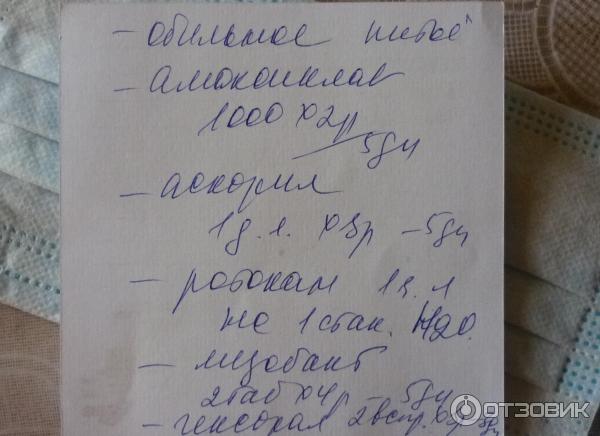 - обильное питьё
- амоксиклав
1000 х2р
5дн
- аскорил
1д.л. х3р - 5дн
- ротокан 1ч.л
на 1 стак. H2O.
- лизобакт
2таб х4р - 5дн
- гексорал 2 вспр. х2р 5дн
ОТЗОВИК